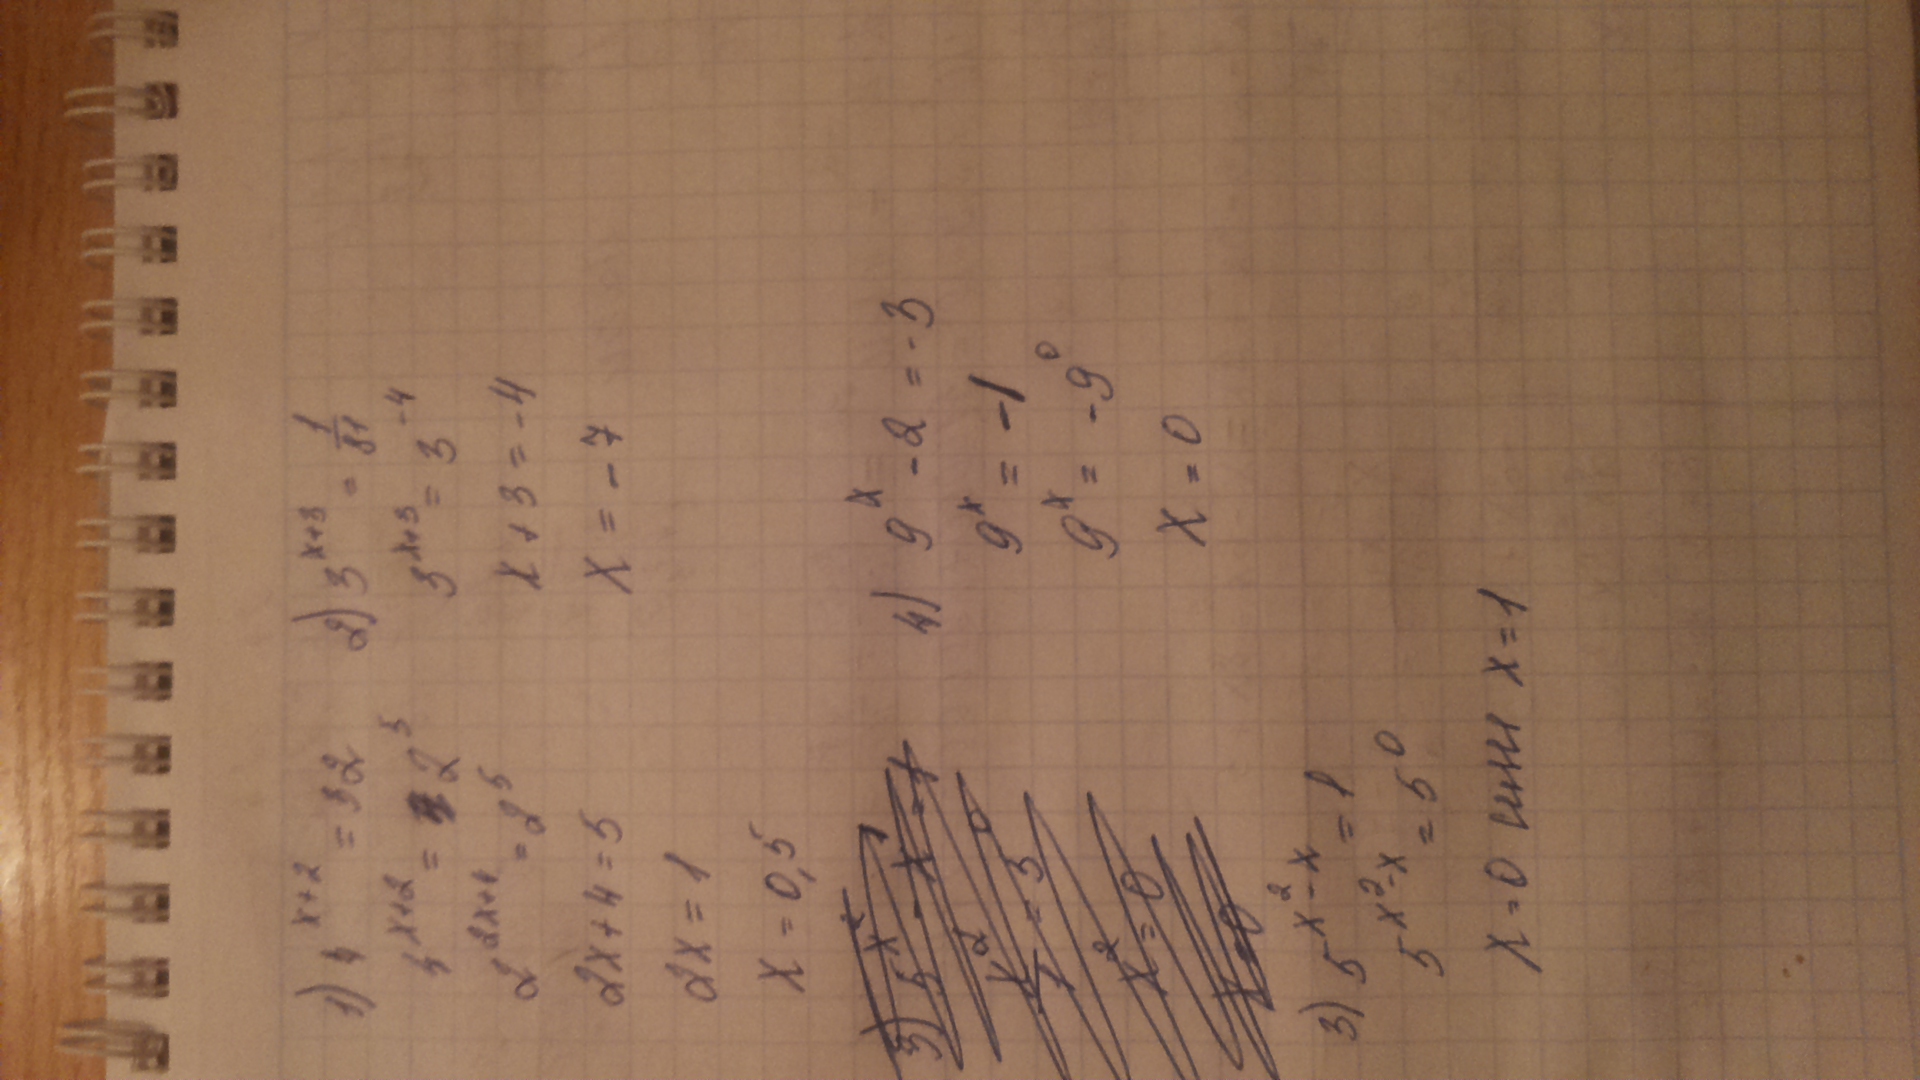 1) 4^(x+2) = 32
4^(x+2) = 2^5
2^(2x+4) = 2^5
2x+4=5
2x=1
x=0,5
2) 3^(x+3) = 1/81
3^(x+3) = 3^(-4)
x+3=-4
x=-7
3) 5^(x^2-x) = 1
5^(x^2-x) = 5^0
x=0 или x=1
4) 9^x - 2 = -3
9^x = -1
9^x = -9^0
x=0